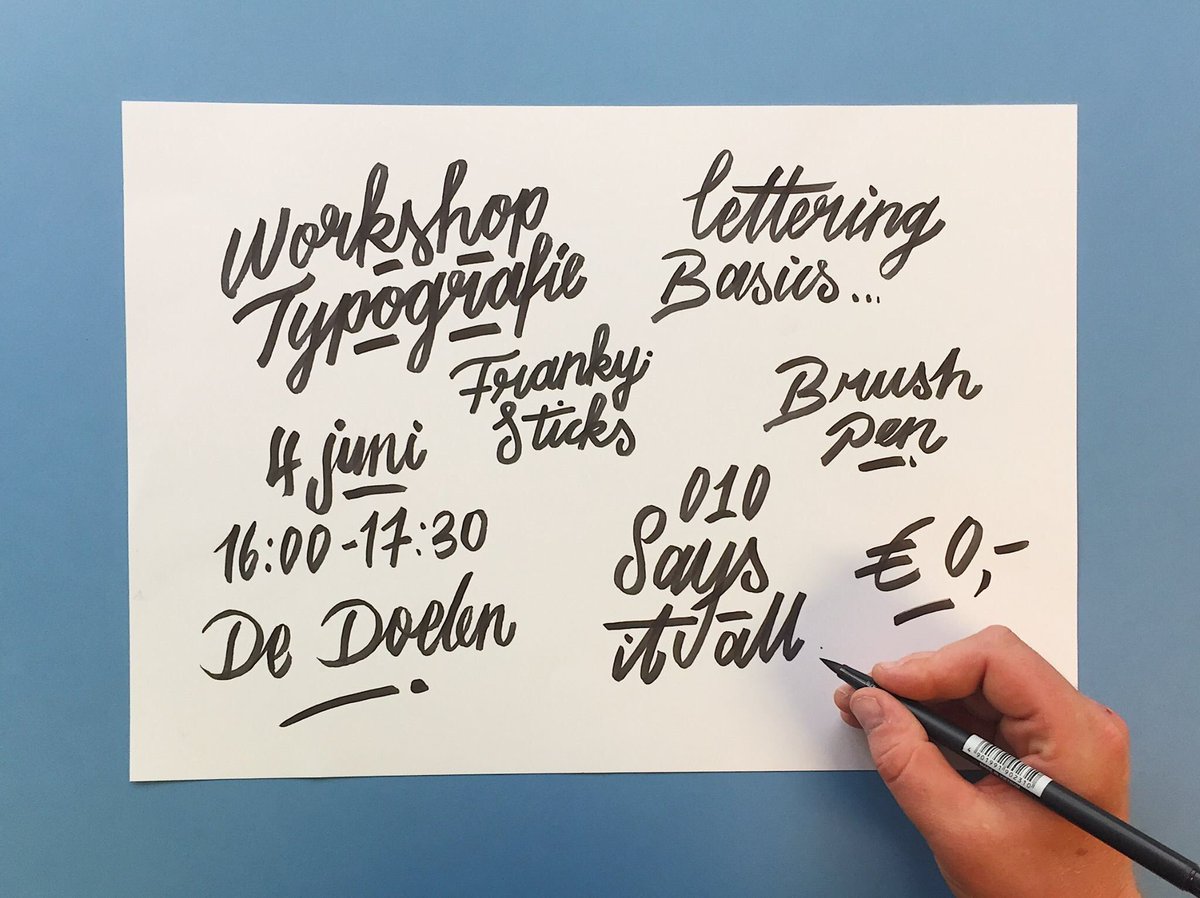 Workshop
Typografie
Franky
Sticks
4 juni
16:00-17:30
De Doelen
lettering
Basics...
Brush
pen
010
Says
it all
€ 0,-
4 901991 902310